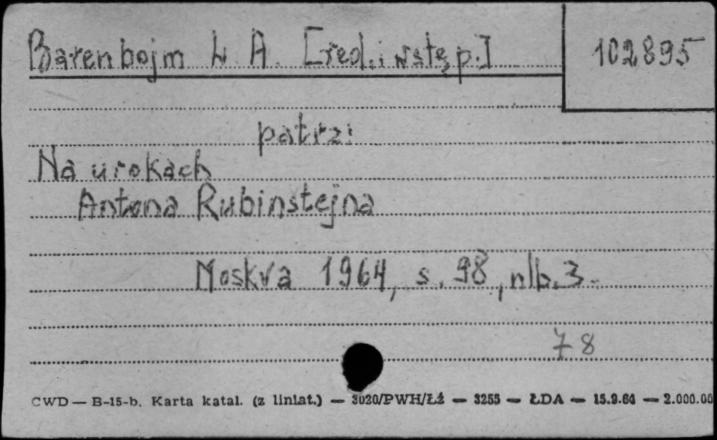 Barenbojm L A. [red. i wstęp.]
102895
patrz:
Na urokach
Antona Rubinstejna
Moskva 1964, s. 98, nlb. 3.
78
CWD — B-15-b. Karta katal. (z liniat.) — 3020/PWH/Łź — 3255 — ŁDA — 15.9.60 — 2.000.00